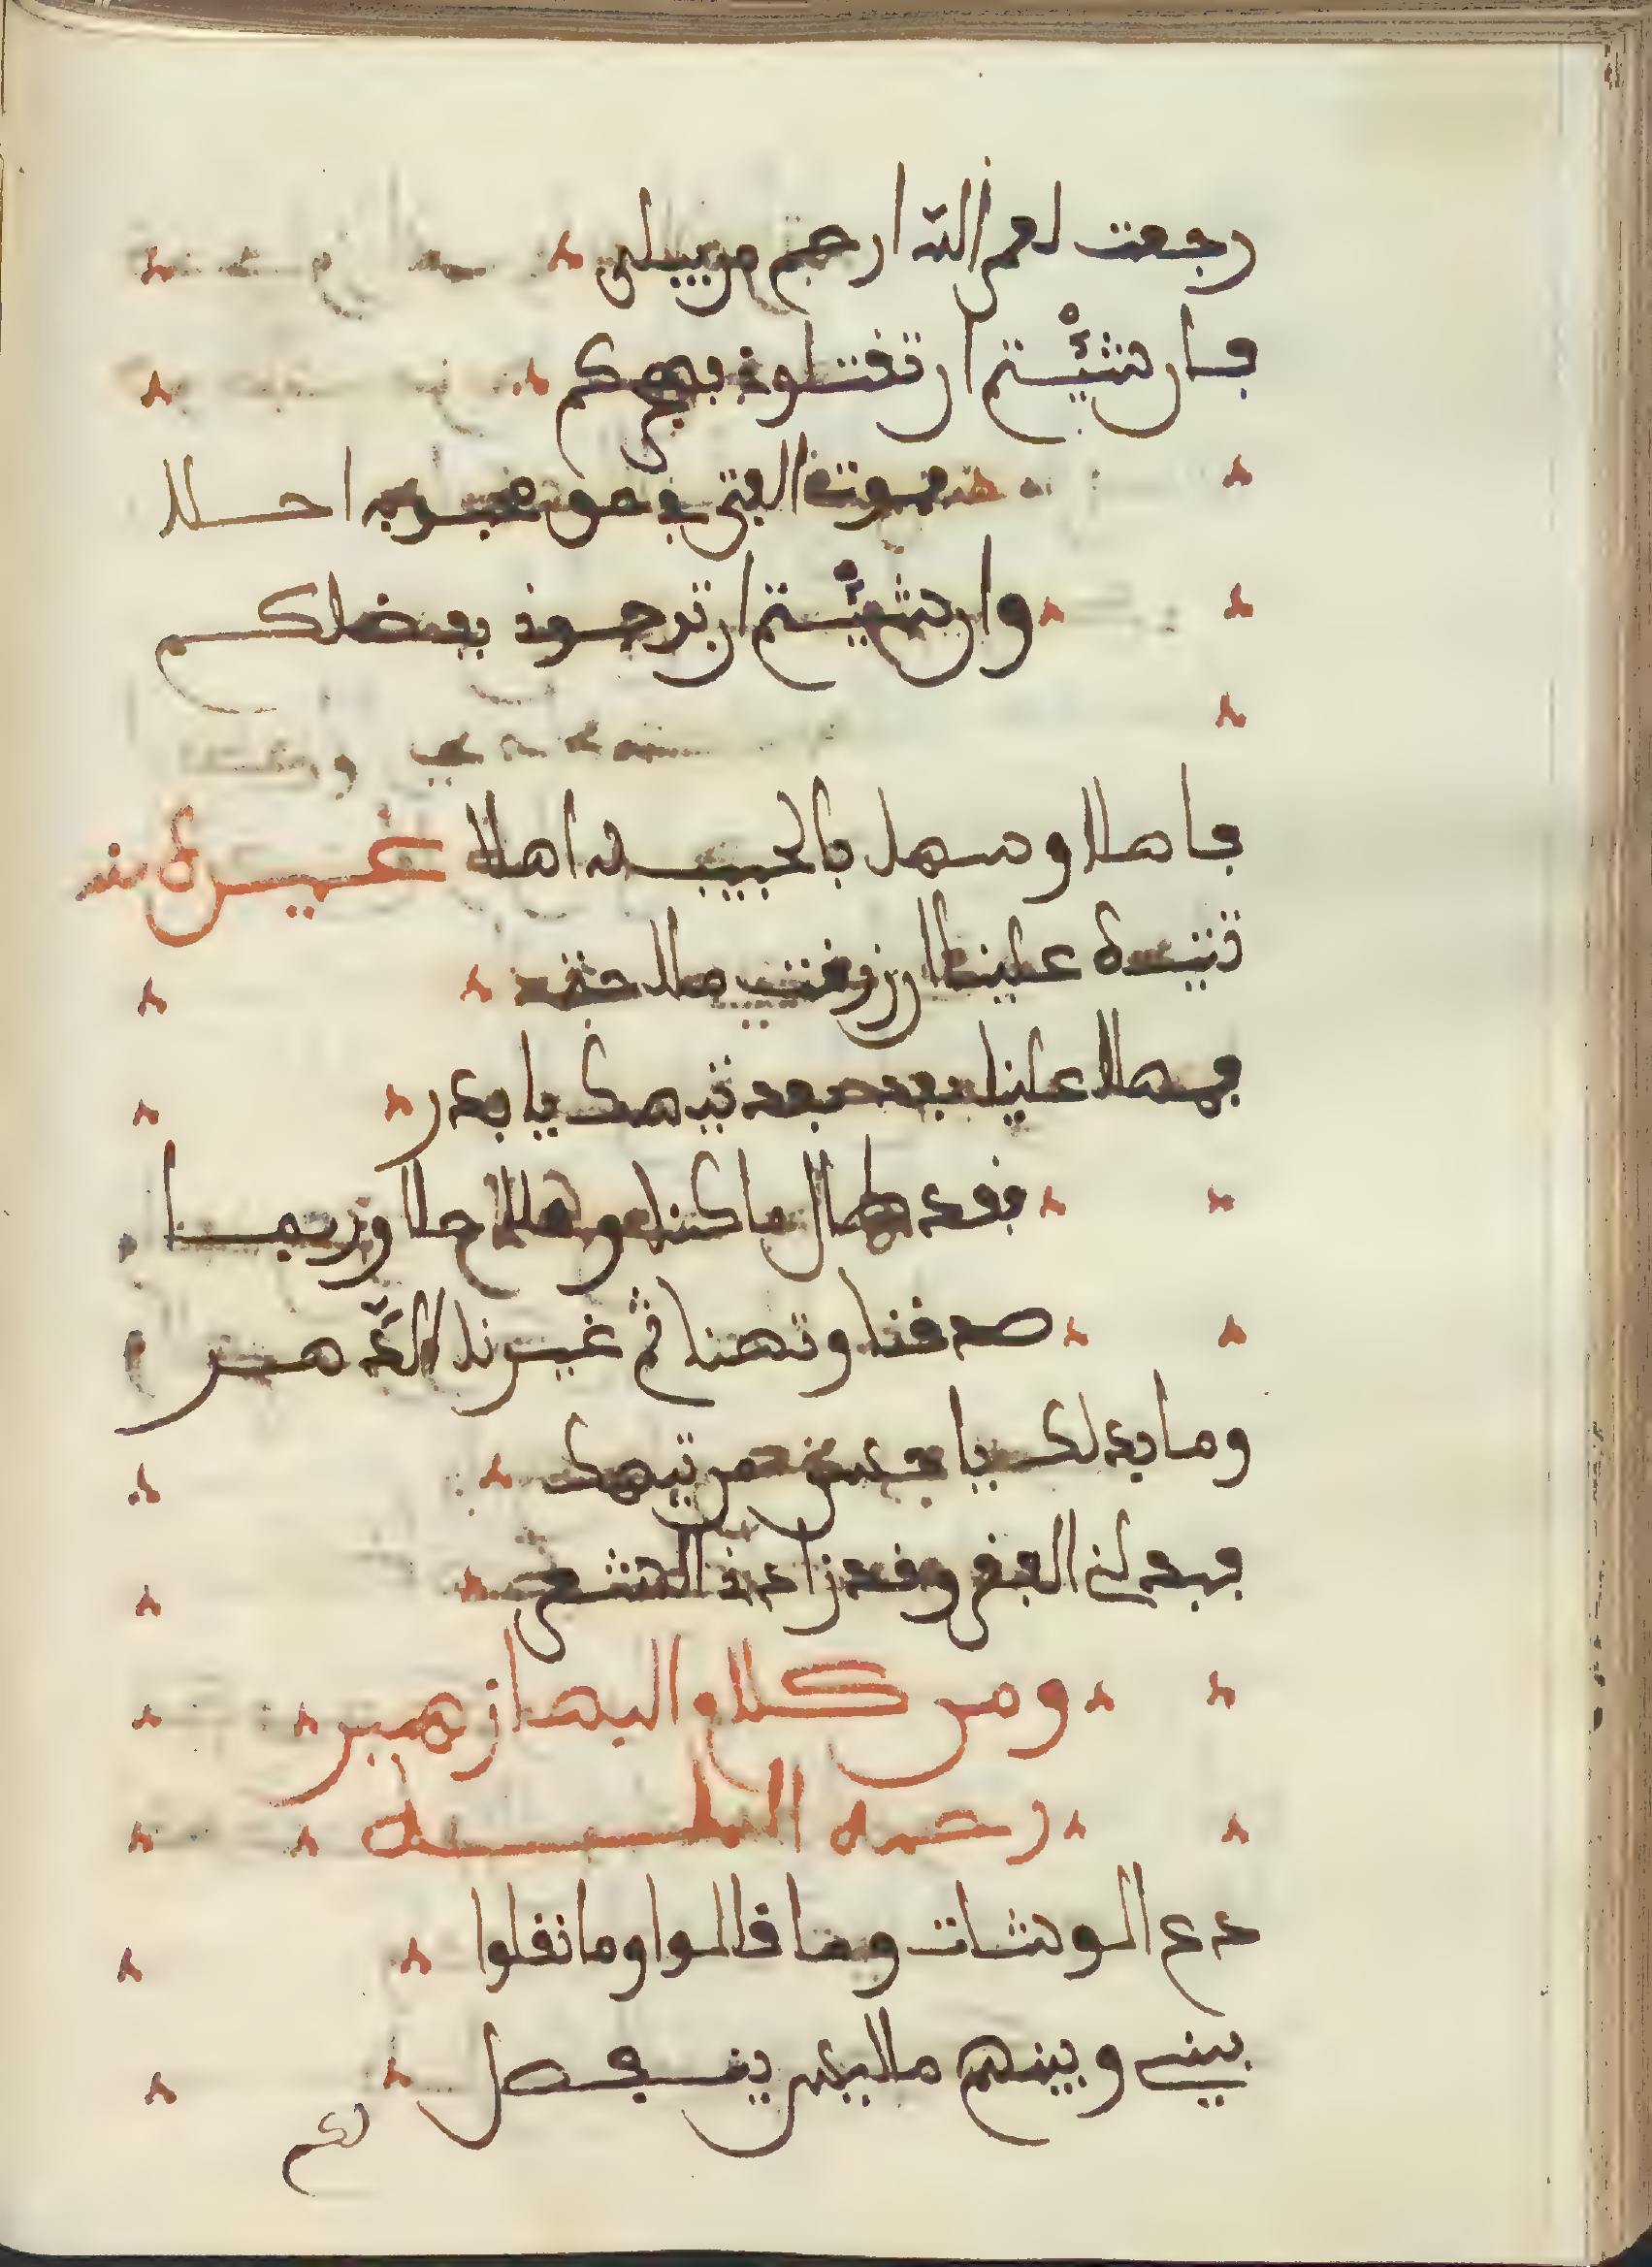 رجعت لعمر الله ارحم من يبلى
فان شئتم ان تقتلون بهجركم
فموت الفتى في صون محبوبه احلا
وان شئتم ان ترحمون بفضلكم
فاهلا وسهلا بالحبيب له اهلا غيره
تتيه علينا ان رزقت ملاحة
فمهلا علينا بعد بعد تيهك يا بدر
فقد طال ما كنا ملاح وربما
صدقنا وتهنا ثم غيرنا الدهر
وما بدا لك يا من تيهك
فبدلني الفقر وقد زادني الشعر
ومن كلام البها زهير
رحمه الله
دع الوشات وما قالوا وما نقلوا
بيني وبينهم ما ليس ينفصل
لكم